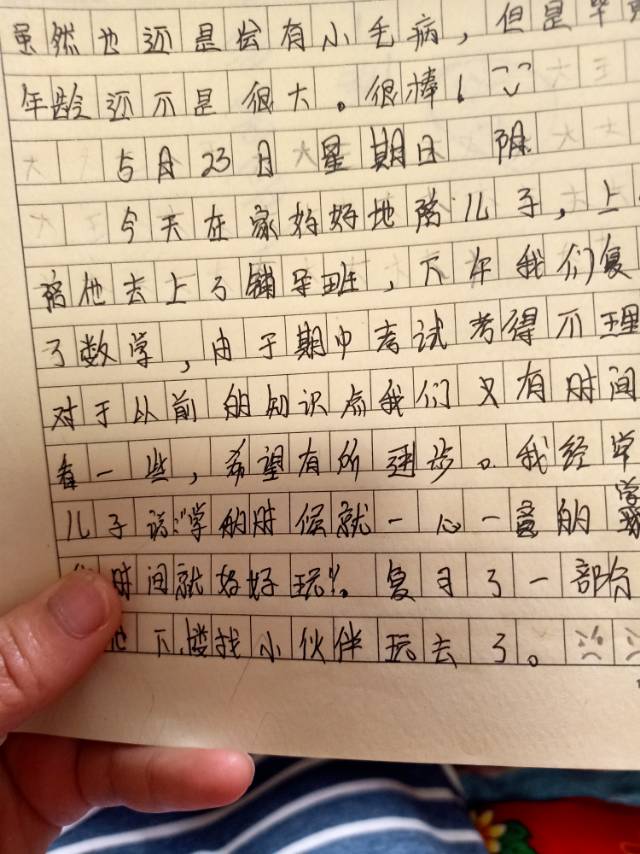 虽然也还是会有小毛病，但是毕竟
年龄还不是很大。很棒！
5月23日 星期日 阴
今天在家好好地陪儿子，上
陪他去上了辅导班，下午我们复
了数学，由于期中考试考得不理
对于以前的知识点我们又有时间
看一些，希望有所进步。我经常
儿子说："学的时候就一心一意的学
时间就好好玩"。复习了一部分
他下楼找小伙伴玩去了。